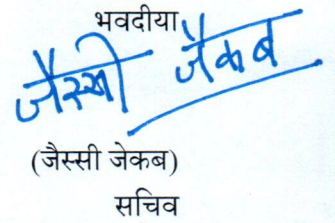 भवदीया
जैस्सी जैकब
(जैस्सी जेकब)
सचिव